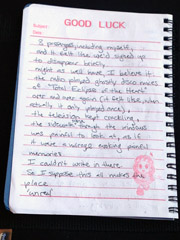 GOOD LUCK
Subject:
Date:
8 passengers, including myself,
and it felt like we'd signed up
to disappear briefly
might as well have, I believe it
the radio played ghostly disco mixes
of "Total Eclipse of the Heart"
over and over again (it felt like, when
actually it only played once),
the television kept crackling,
the sidewalk through the windows
was painful to look at, as if
it were a mirage making painful
memories
I couldn't write in there
So I suppose this all makes the
place
"unreal"